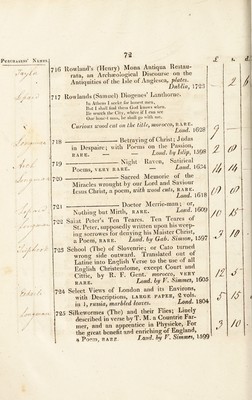 72
Purchasers' Names
£ s. d.
716 Rowland's (Henry) Mona Antiqua Restau-
rata, an Archæological Discourse on the
Antiquities of the Isle of Anglesea, plates.
Dublin, 1723
717 Rowlands (Samuel) Diogenes' Lanthorne.
In Athens I seeke for honest men,
But I shall finde them God knows when.
Ile search the City, where if I can see
One honest man, he shall go with me.
Curious wood cut on the title, morocco, RARE.
Lond. 1628
718 Betraying of Christ; Judas
in Despaire; with Poems on the Passion,
RARE. Lond. by Islip, 1598
719 Night Raven, Satirical
Poems, VERY RARE. Lond. 1634
720 Sacred Memorie of the
Miracles wrought by our Lord and Saviour
Jesus Christ, a poem, with wood cuts, RARE.
Lond. 1618
721 Doctor Merrie-man; or,
Nothing but Mirth, RARE. Lond. 1609
722 Saint Peter's Ten Teares. Ten Teares of
St. Peter, supposedly written upon his weep-
ing sorrowes for denying his Maister Christ,
a Poem, RARE. Lond. by Gab. Simson, 1597
723 School (The) of Slovenrie; or Cato turned
wrong side outward. Translated out of
Latine into English Verse to the use of all
English Christendome, except Court and
Cittie, by R. F. Gent. morocco, VERY
RARE. Lond. by V. Simmes, 1605
724 Select Views of London and its Environs,
with Descriptions, LARGE PAPER, 2 vols.
in 1, russia, marbled leaves. Lond. 1804
725 Silkewormes (The) and their Flies; Lively
described in verse by T. M. a Countrie Far-
mer, and an apprentice in Physicke, For
the great benefit and enriching of England,
a Poem, RARE Lond. by V. Simmes, 1599